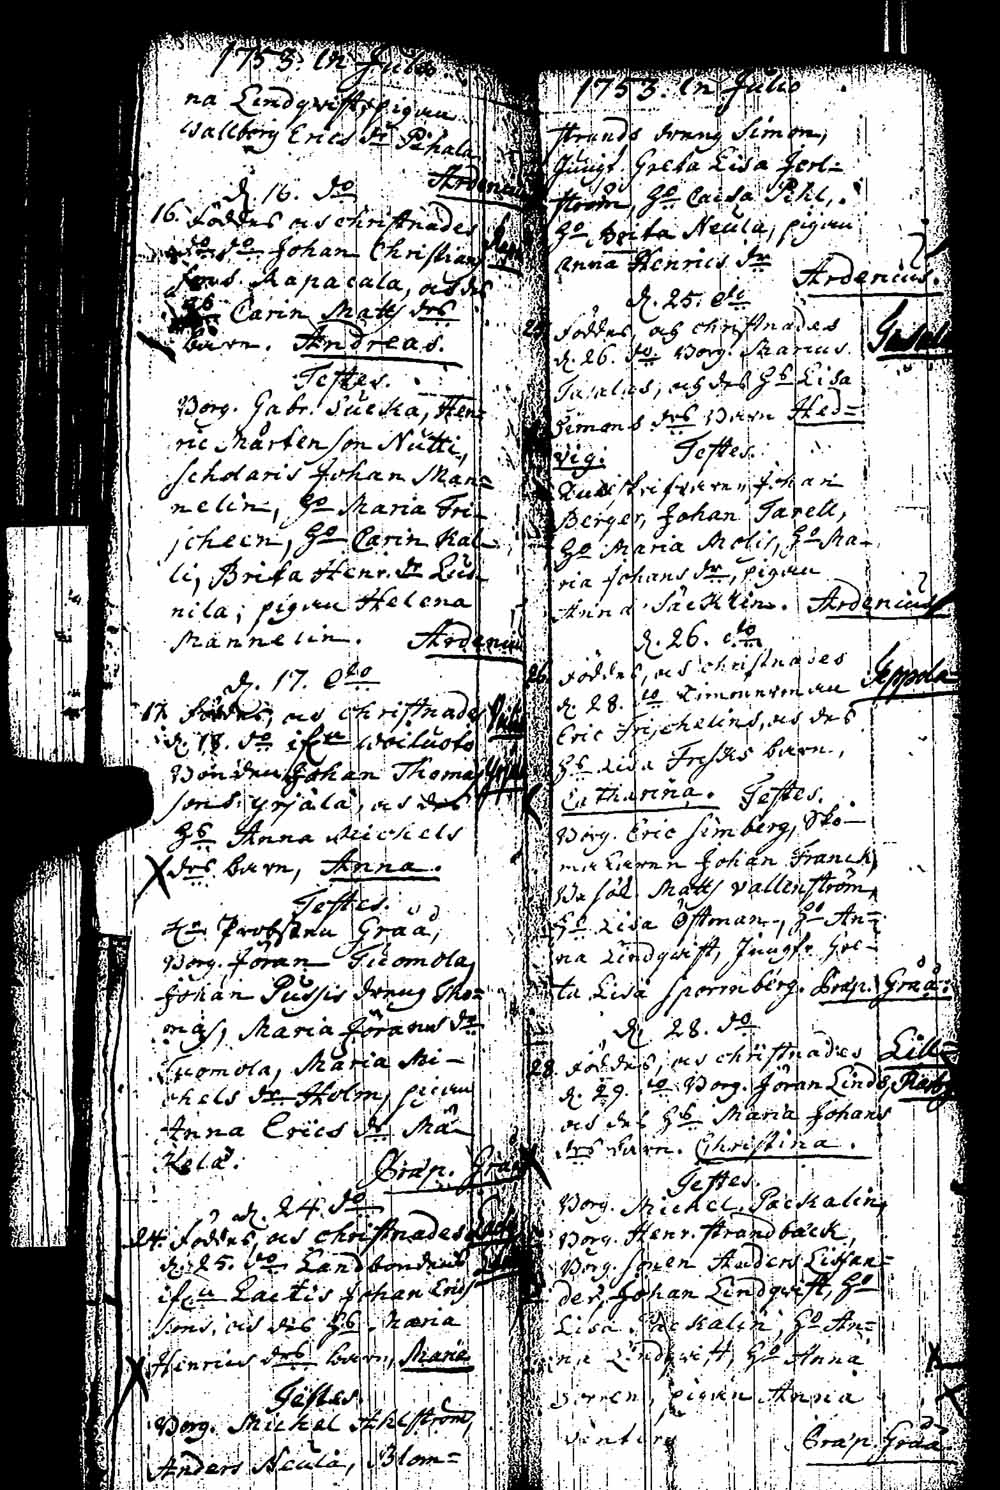 1753. In Julio
na Lindqvist, pigan
Wallborg Erics dr Pihala
Ardenius
d. 16. do
16. föddes ock christnades
do do Johan Christians
sons Rapacala, ock des
hs Carin Matts drs
barn. Andreas.
Testes.
Borg. Gabr. Sueka, Hen=
ric Mårtenson Nutti,
scholaris Johan Man=
nelin, ho Maria Fri=
scheen, ho Carin Kal=
li, Brita Henr. dr
nila; pigan Helena
Mannelin. Ardenius
d. 17. do
17. föddes, ock christnades
d. 18. do ifrn
Bonden Johan Thomas
sons Yrjälä, ock des
hs Anna Michels
drs barn, Anna.
Testes.
Hr Probsten Graå,
Borg. Jöran Tuomola,
Johan Pussis dreng Tho=
mas, Maria Jörans dr
Tuomola, Maria Mi=
chels dr Holm, pigan
Anna Erics dr Mä=
kelä. Præp. Graå
d. 24. do
24. föddes, ock christnades
d. 25. do Landbondens
ifrn Laetis Johan
sons, ock des hs. Maria
Henrics drs barn, Maria
Testes.
Borg. Michel Ahlström,
Anders Neula, Blom=
1753. In Julio
strands dreng Simon,
Jungf. Greta Lisa Jerl=
ström, ho Caisa Pihl,
ho Brita Neula, pigan
Anna Henrics dr
Ardenius.
d. 25. do
25. föddes, ock christnades
d. 26. do Borg. Marcus
Tasales, ock des hs Lisa
Simons drs barn Hed=
vig. Testes.
Johan
Berger, Johan Tarell,
ho Maria Molis, ho Ma=
ria Johans dr, pigan
Anna Säcklin. Ardenius
d. 26. do
26. föddes, ock christnades Seppola
d. 28. do Timmerman
Eric Frichelins, ock des
hs Lisa barn,
Catharina. Testes.
Borg. Eric Simberg, Sko=
makaren Johan Franck,
Matts Vallenström,
ho Lisa Östman, ho An=
na Lindqvist, Jungfr Gre=
ta Lisa Sporrnberg. Præp. Graå.
d. 28. do
28. föddes, ock christnades
d. 29. do Borg. Jöran Linds,
ock des hs Maria Johans
drs barn. Christina.
Testes.
Borg. Michel Packalin,
Borg. Henr. Strandbäck,
Borg. sonen Anders Lisan=
der, Johan Lindqvist, ho
Lisa Packalin, ho An=
na Lindqvist, ho Anna
pigan Anna
Præp. Graå